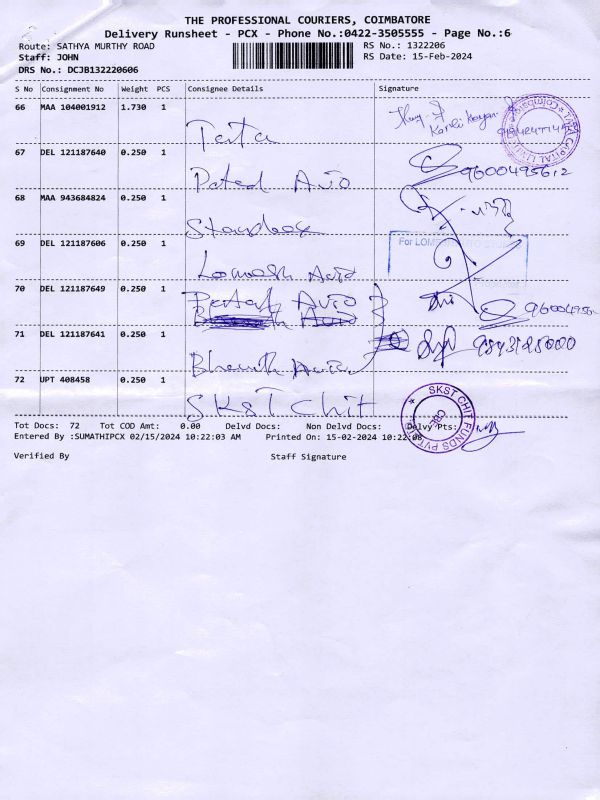 THE PROFESSIONAL COURIERS, COIMBATORE
Delivery Runsheet - PCX - Phone No.:0422-3505555 - Page No.:6
Route: SATHYA MURTHY ROAD
RS No.: 1322206
Staff: JOHN
RS Date: 15-Feb-2024
DRS No.: DCJB132220606
S No Consignment No Weight PCS Consignee Details Signature
66 MAA 104001912 1.730 1
Tata
67 DEL 121187640 0.250 1
9600495612
Auto
68 MAA 943684824 0.250 1
69 DEL 121187606 0.250 1
For LOM
Auto
70 DEL 121187649 0.250 1
Auto
71 DEL 121187641 0.250 1
72 UPT 408458 0.250 1
SKST Chit
SKST CHIT FUNDS PVT CBE
Tot Docs: 72 Tot COD Amt: 0.00 Delvd Docs: Non Delvd Docs: Delvy Pts:
Entered By :SUMATHIPCX 02/15/2024 10:22:03 AM Printed On: 15-02-2024 10:22:08
Verified By Staff Signature